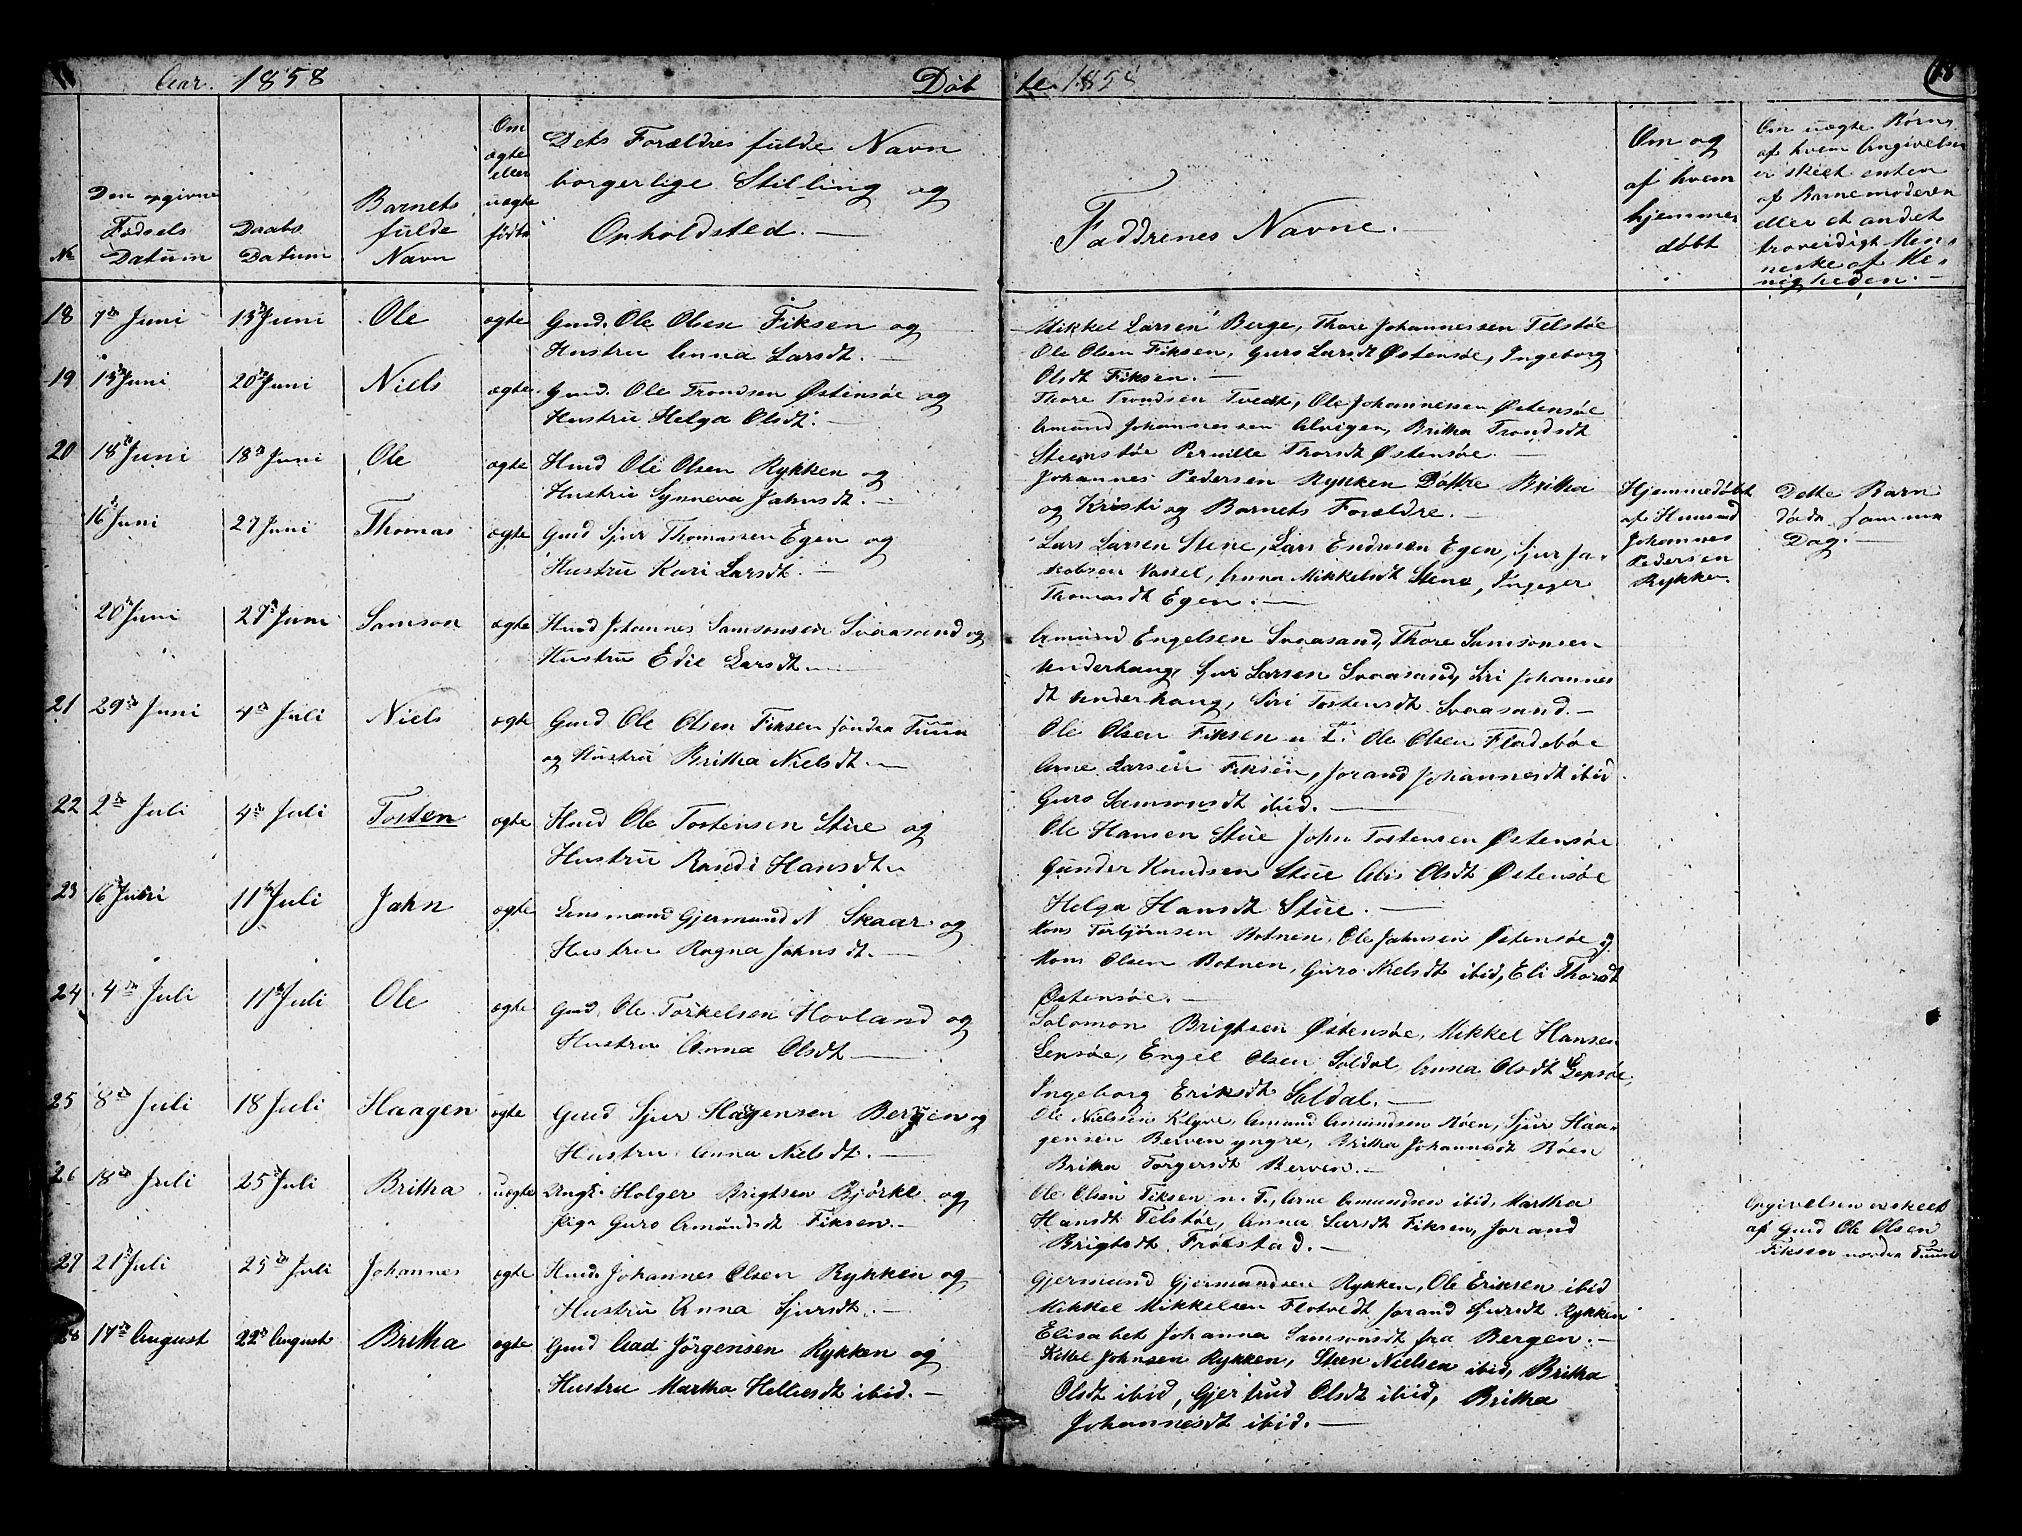 Aar. 1858
Døb
te 1858
18
No
Den opgivne
Fødsels
Datum
Daabs
Datum
Barnets
fulde
Navn
Om
ægte
eller
uægte
født
Dets Forældres fulde Navn
borgerlige Stilling og
Opholdsted. —
Faddrenes Navne.
Om og
af hvem
hjemme
døbt
Om uægte Børn
af hvem Angivelsen
er skeet enten
af Barnemoderen
eller et andet
troverdigt Men-
neske af Me-
nigheden. —
18 7de Juni 13de Juni Ole ægte Gmd. Ole Olsen Fiksen og
Hustru Anna Larsdt. —
Mikkel Larsen Berge, Thore Johannessen Telstøe
Ole Olsen Fiksen, Guro Larsdt Østensøe, Ingeborg
Olsdt Fiksen. —
19 13de Juni 20de Juni Niels ægte Gmd. Ole Trondsen Østensøe og
Hustru Helga Olsdt. —
Thore Trondsen Tvedt, Ole Johannessen Østensøe
Amund Johannessen Alvigen, Britha Trondsdt
Steenstøe Pernille Thorsdt Østensøe. —
20 18de Juni 18de Juni Ole ægte Hmd Ole Olsen Rykken og
Hustru Synneva Jahnsdt. —
Johannes Pedersen Rykken Døttre Britha
og Kristi og Barnets Forældre. —
Hjemmedøbt
af Huusmd
Johannes
Pedersen
Rykken.
Dette Barn
døde samme
Dag. —
16de Juni 27 Juni Thomas ægte Gmd Sjur Thomassen Egen og
Hustru Kari Larsdt. —
Lars Larsen Stene, Lars Endresen Egen, Sjur Ja-
kobsen Vassel, Anna Mikkelsdt Stene, Ingeger
Thomasdt Egen. —
20de Juni 27de Juni Samson ægte Hmd Johannes Samsonsen Svaasand og
Hustru Edie Larsdt. —
Amund Engelsen Svaasand, Thore Samsonsen
Underhaug, Sjur Larsen Svaasand, Siri Johannes
dt Underhaug, Siri Tostensdt Svaasand. —
21 29de Juni 4de Juli Niels ægte Gmd Ole Olsen Fiksen søndra Tuun
og Hustru Britha Nielsdt. —
Ole Olsen Fiksen n T. Ole Olsen Fladebøe
Arne Larsen Fiksen, Jorand Johannesdt ibid
Guro Samsonsdt ibid. —
22 2de Juli 4de Juli Tosten ægte Hmd Ole Tostensen Stue og
Hustru Randi Hansdt.
Ole Hansen Stue John Tostensen Østensøe
Gunder Knudsen Stue Alis Olsdt Østensøe
Helga Hansdt Stue. —
23 16de Juni 11te Juli Jahn ægte Lensmand Gjermund N Skaar og
Hustru Ragna Jahnsdt. —
Mons Torbjørnsen Botnen, Ole Jahnsen Østensøe
Mons Olsen Botnen, Guro Nielsdt ibid, Eli Thorsdt
Østensøe. —
24 4de Juli 11te Juli Ole ægte Gmd. Ole Torkelsen Hovland og
Hustru Anna Olsdt —
Solomon Brigtsen Østensøe, Mikkel Hansen
Lepsøe, Engel Olsen Soldal Anna Olsdt Lepsøe,
Ingeborg Eriksdt Soldal. —
25 8de Juli 18 Juli Haagen ægte Gmd Sjur Haagensen Berven og
Hustru Anna Nielsdt. —
Ole Nielsen Klyve, Amund Amundsen Røen, Sjur Haa-
gensen Berven yngre, Britha Johannesdt Røen
Britha Torgersdt Berven. —
26 18de Juli 25de Juli Britha uægte Ungk. Holger Brigtsen Bjørke og
Pige Guro Amundsdt Fiksen. —
Ole Olsen Fiksen n. T., Arne Amundsen ibid, Martha
Hansdt Telstøe, Anna Larsdt Fiksen, Jorand
Brigtsdt Frølstad. —
Angivelsen er skeet
af Gmd Ole Olsen
Fiksen nordra Tuun
27 21de Juli 25de Juli Johannes ægte Hmd Johannes Olsen Rykken og
Hustru Anna Sjursdt. —
Gjermund Gjermundsen Rykken, Ole Eriksen ibid
Mikkel Mikkelsen Flotvedt Jorand Sjursdt Rykken
Elisabet Johanna Samsonsdt fra Bergen. —
28 17de August 22de August Britha ægte Gmd Aad Jørgensen Rykken og
Hustru Martha Helliesdt ibid. —
Kittel Johnsen Rykken, Steen Nielsen ibid, Britha
Olsdt ibid, Gjertrud Olsdt ibid, Britha
Johannesdt ibid. —